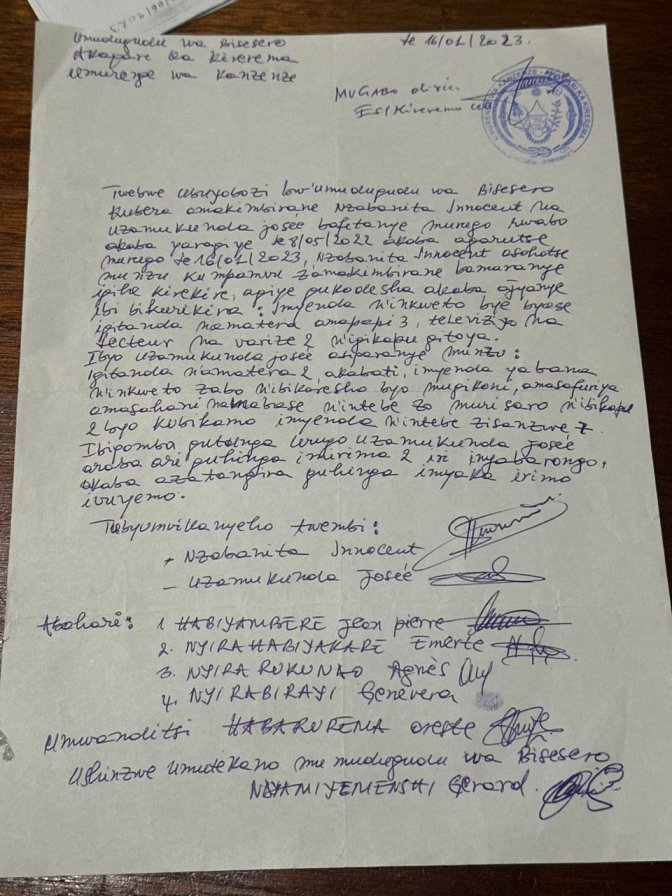 Umudugudu wa Bisesero
Akagare ka Kirerema
Umurenge wa Kanzenze
le 16/01/2023.
MUGABO
ES/Kirerema
Twebwe ubuyobozi bw'umudugudu wa Bisesero
kubera amakimbirane Nzabanita Innocent na
uzamukunda joseé bafitanye murugo rwabo
akaba yaragiye le 8/05/2022 akaba agarutse
murugo le 16/01/2023, Nzabanita Innocent asohotse
munzu kumpamvu zamakimbirane bamaranye
igihe kirekire, agiye gukodesha akaba ajyanye
ibi bikurikira: imyenda n'inkweto bye byose
igitanda na matera amagagi 3, televiziyo na
lecteur na varize 2 n'igikapu gitoya.
Ibyo uzamukunda joseé asigaranye munzu:
igitanda niamatera 2, akabati, imyenda yabana
n'inkweto zabo n'ibikoresho byo mugikoni, amasafuriya
amasahani nabase n'intebe zo murisaro n'ibikapu
2 byo kubikamo imyenda n'intebe zisanzwe 7.
Ibigomba gutunga urugo uzamukunda joseé
araba ari guhinga imirima 2 iri inyabarongo,
akaba azatangira guhinga imyaka irimo
ivuyemo.
Tubyumvikanyeho twembi:
+ Nzabanita Innocent
- uzamukunda joseé
Abahari: 1 HABIYAMBERE Jean pierre
2. NYIRAHABIYAKARE Emerte
3. NYIRARUKUNDO Agnès
4. NYIRABIRAYI Genevera
Umwanditsi HABARUREMA oreste
Ushinzwe umutekano mu mudugudu wa Bisesero
NDAMIYEMENSHI Gerard.